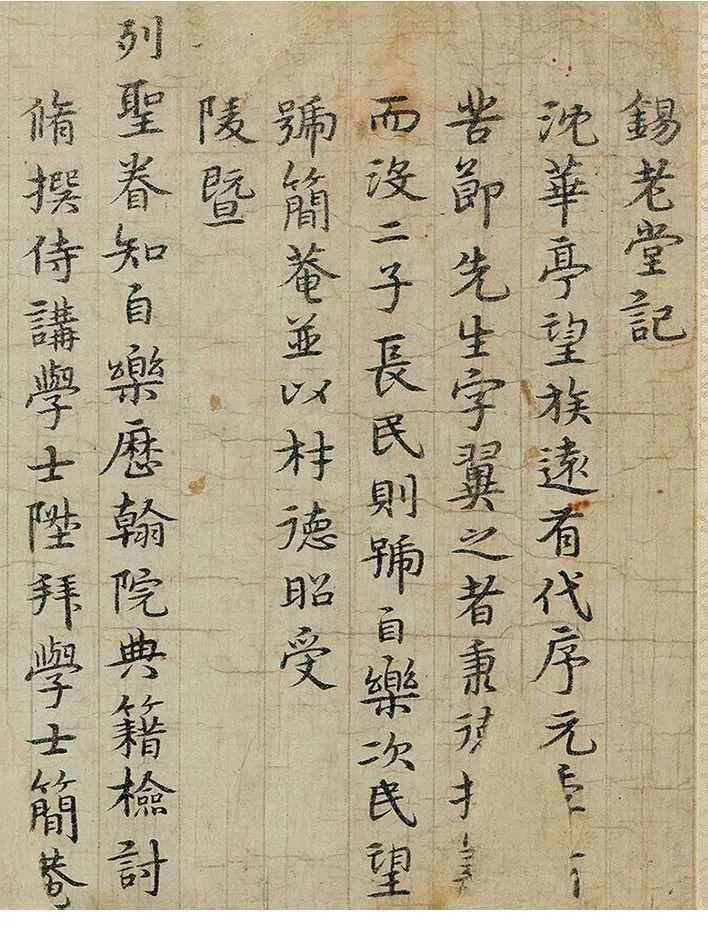 錫老堂記
沈華亭望族遠有代序元
苦節先生字翼之者秉德
而沒二子長民則號自樂次民望
號簡菴並以材德昭受
陵暨
列聖眷知自樂歷翰院典籍檢討
脩撰侍講學士陞拜學士簡菴